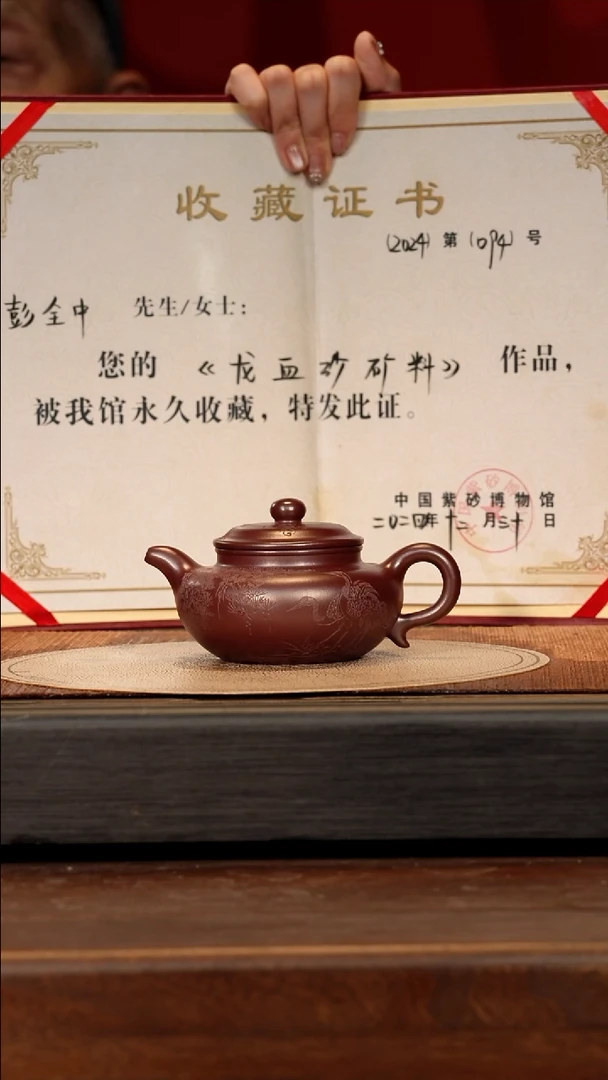 收藏证书
(2024) 第 (094) 号
彭全中 先生/女士：
您的 《龙血砂矿料》 作品，
被我馆永久收藏，特发此证。
中国紫砂博物馆
二〇二四年十二月三十日